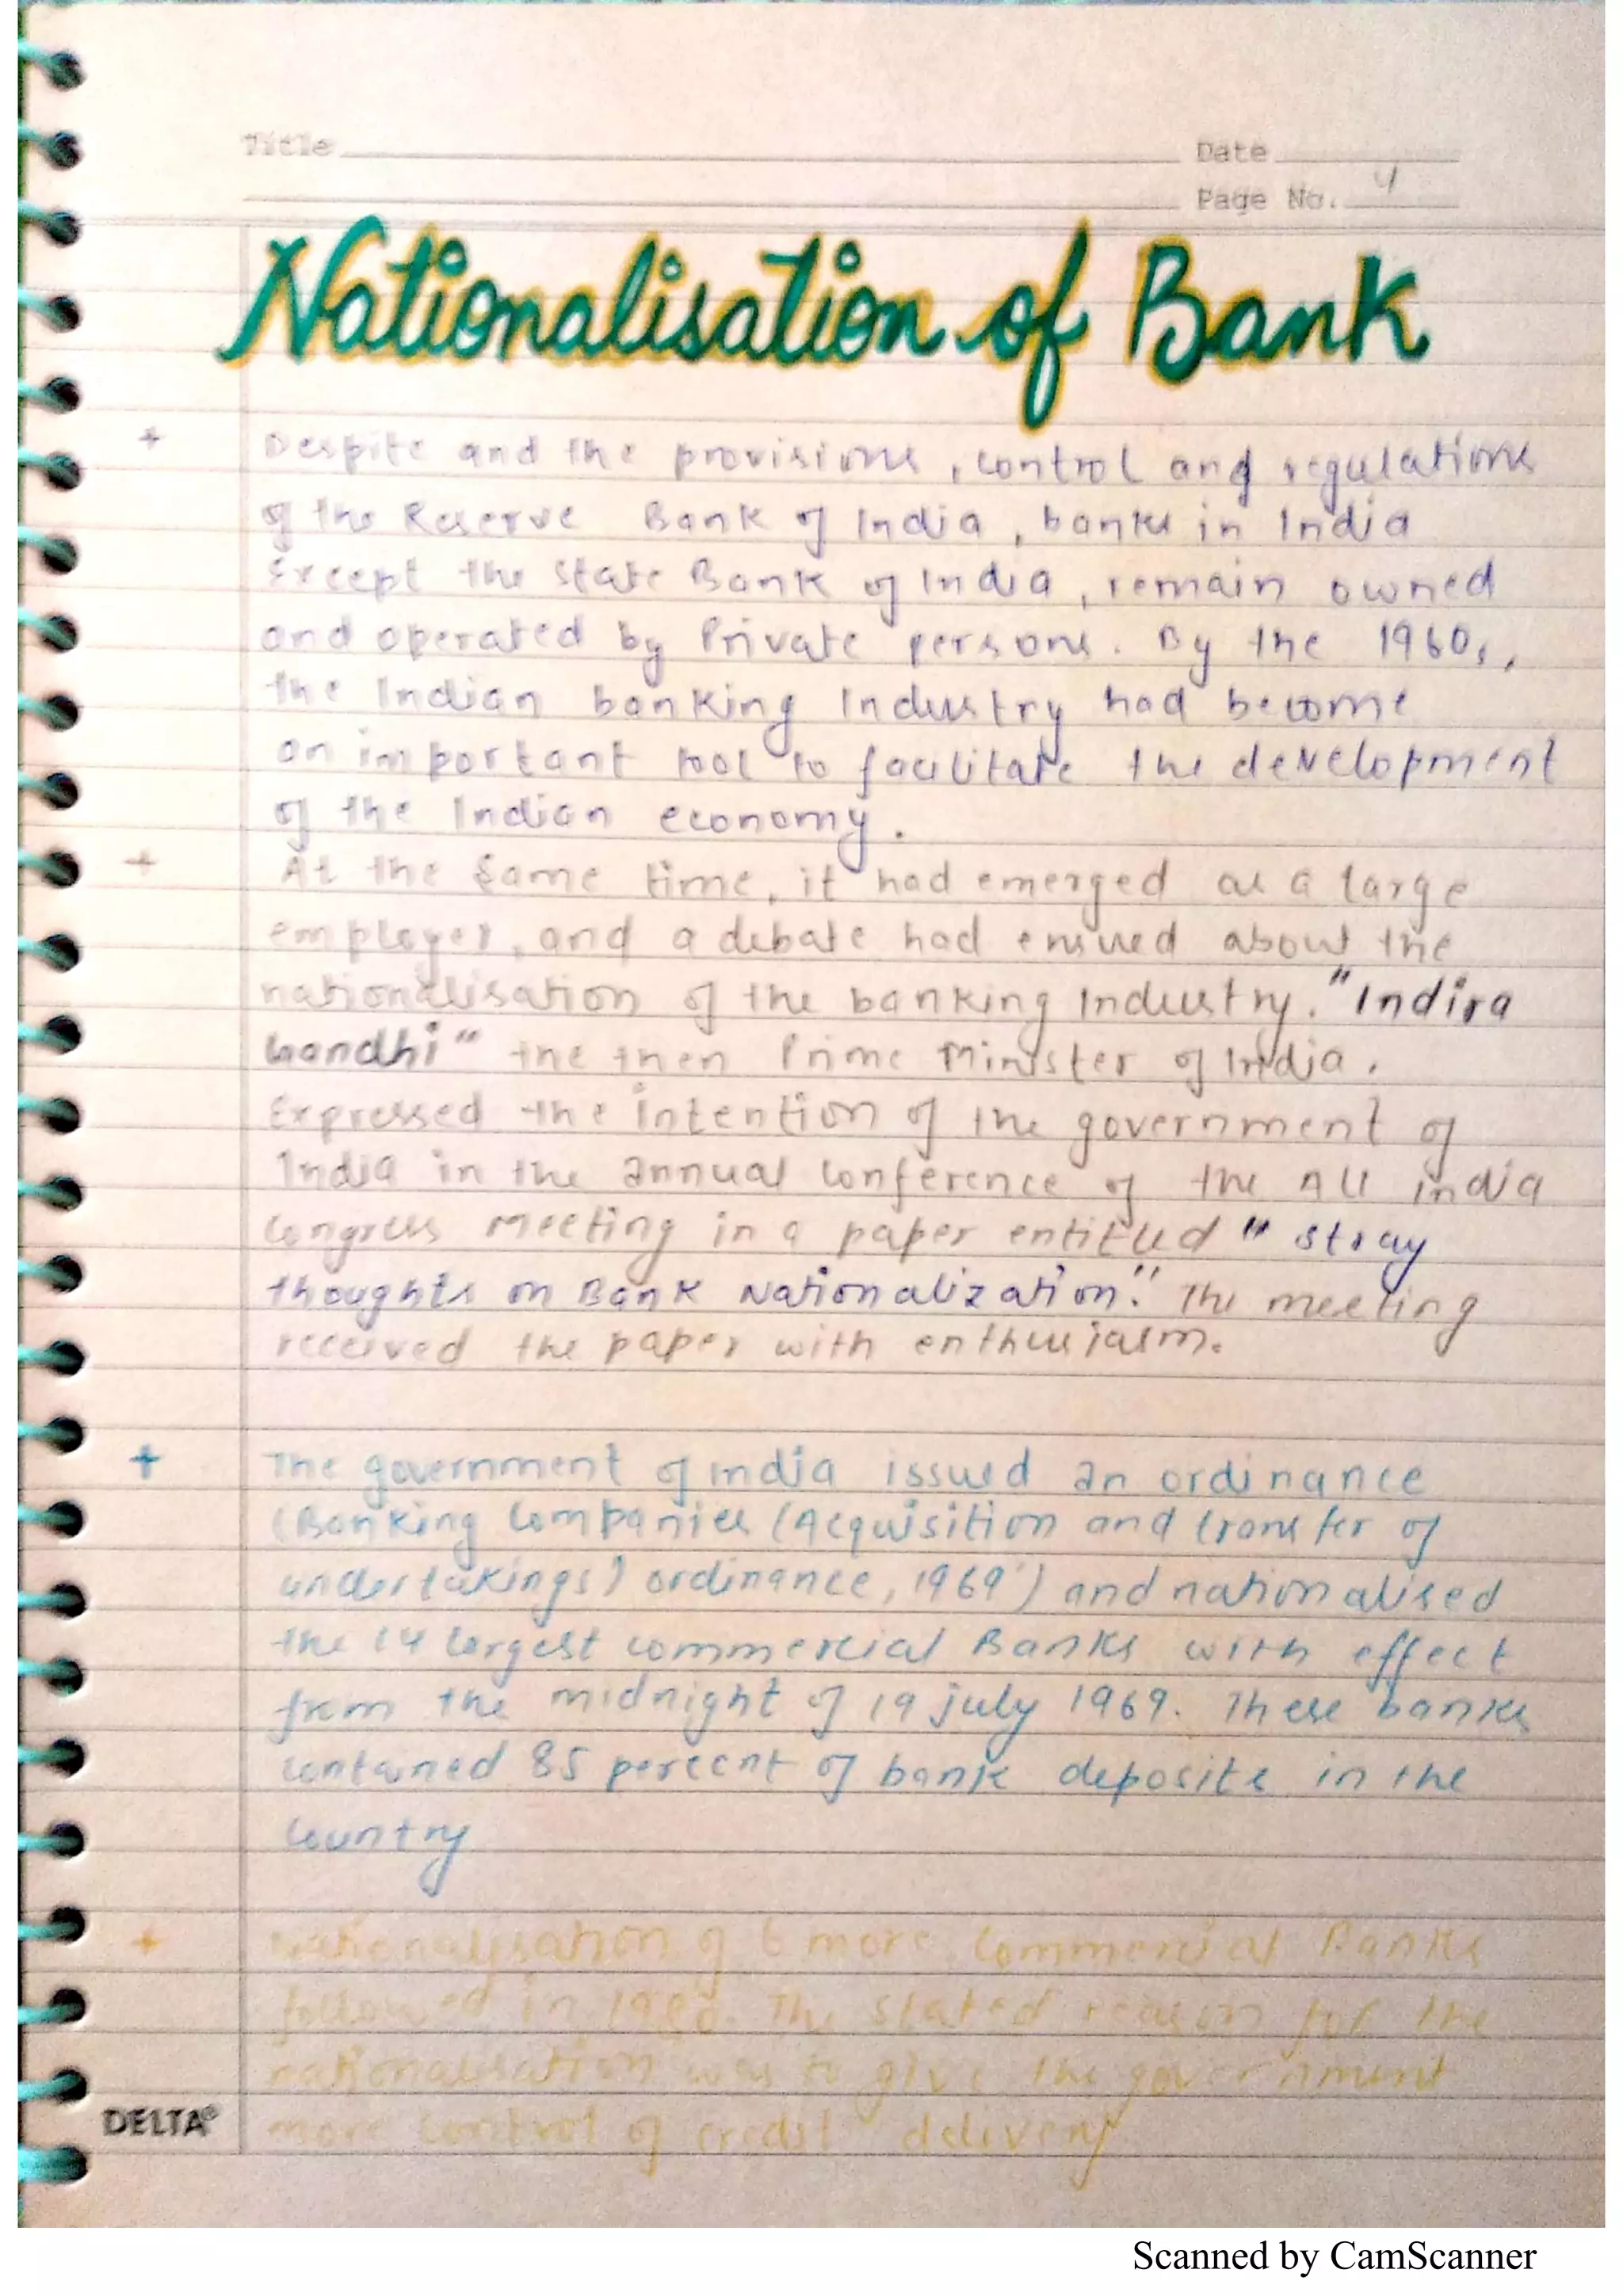 Title
Date
Page No. 4
Nationalisation of Bank
+ Despite and the provisions, control and regulations
of the Reserve Bank of India, banks in India
Except the State Bank of India, remain owned
and operated by Private persons. By the 1960s,
the Indian banking Industry had become
an important tool to facilitate the development
of the Indian economy.
+ At the Same time, it had emerged as a large
employer, and a debate had ensued about the
nationalisation of the banking Industry. "Indira
Gandhi" the then Prime Minister of India.
Expressed the intention of the government of
India in the annual Conference of the All india
Congress Meeting in a paper entitled "stray
thoughts on Bank Nationalization." The meeting
received the paper with enthusiasm.
+ The government of india issued an ordinance
(Banking Companies (Acquisition and transfer of
undertakings) ordinance, 1969') and nationalised
the 14 largest commercial Banks with effect
from the midnight of 19 july 1969. These banks
contained 85 percent of bank deposits in the
Country
+ Nationalysation of 6 more Commercial Banks
followed in 1980. The stated reason for the
nationalisation was to give the government
more control of credit delivery
DELTA®
Scanned by CamScanner